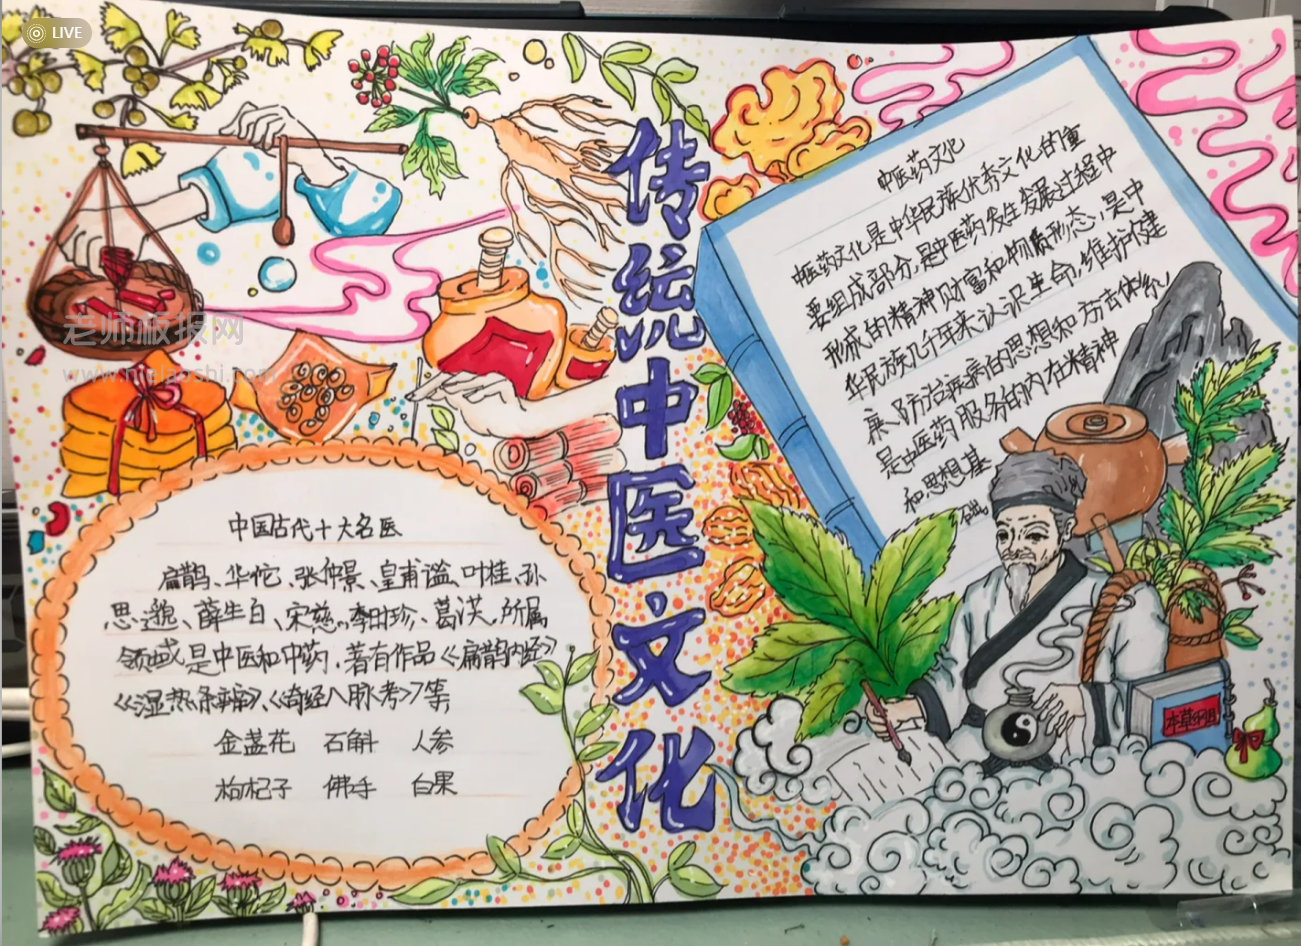 LIVE
传统中医文化
中医药文化
中医药文化是中华民族优秀文化的重
要组成部分,是中医药发生发展过程中
形成的精神财富和物质形态,是中
华民族几千年来认识生命,维护健
康、防治疾病的思想和方法体系,
是中医药服务的内在精神
和思想基
础
老师板报网
中国古代十大名医
扁鹊、华佗、张仲景、皇甫谧、叶桂、孙
思邈、薛生白、宋慈、李时珍、葛洪,所属
领域是中医和中药,著有作品《扁鹊内经》
《湿热条辨》、《奇经八脉考》等
金盏花 石斛 人参
枸杞子 佛手 白果
本草纲目